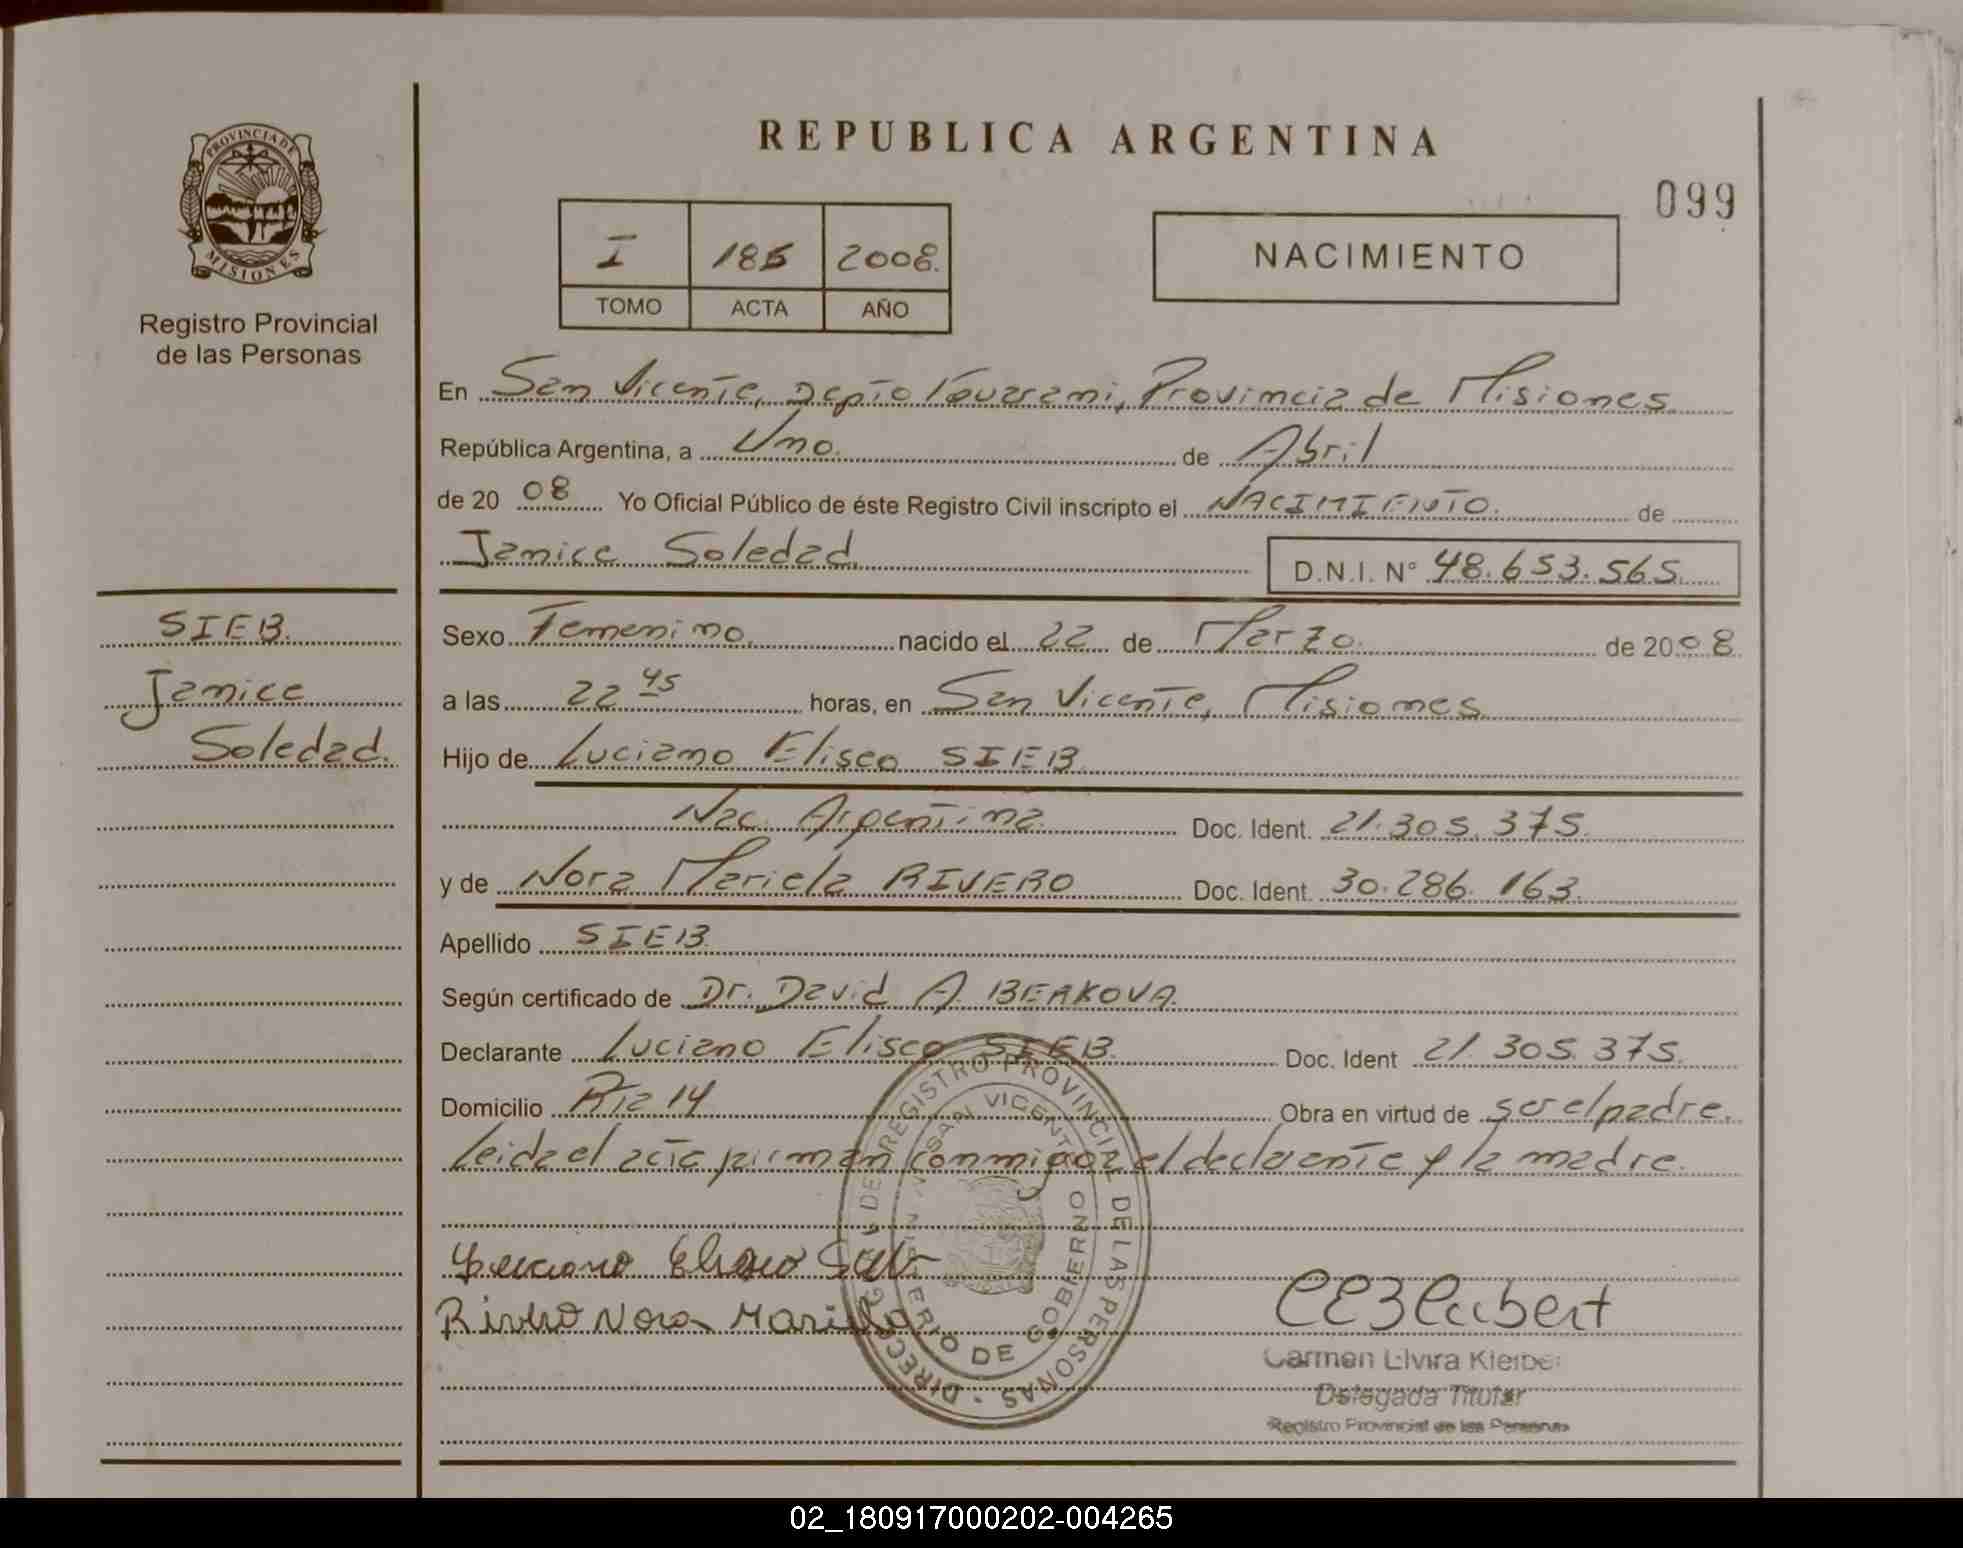 REPUBLICA ARGENTINA
099
PROVINCIA DE MISIONES
Registro Provincial
de las Personas
I 2008.
TOMO ACTA AÑO
NACIMIENTO
En San Vicente, Depto Guarani, Provincia de Misiones
República Argentina, a Uno. de Abril
de 20 08 Yo Oficial Público de éste Registro Civil inscripto el NACIMIENTO. de
Janice Soledad D.N.I. N° 48.653.565
SIEB.
Janice
Soledad.
Sexo Femenino. nacido el 22 de Marzo. de 2008.
a las 22 45 horas, en San Vicente, Misiones
Hijo de Luciano Eliseo SIEB
Nac. Argentina Doc. Ident. 21.305.375.
y de Nora Mariela RIVERO Doc. Ident. 30.286.163.
Apellido SIEB
Según certificado de Dr. David A.
Declarante Luciano Eliseo SIEB. Doc. Ident 21.305.375.
Domicilio 14 Obra en virtud de ser el padre.
Leida el acta firman conmigo el declarante y la madre.
Luciano Eliseo Sieb
Rivero Nora Mariela
Carmen Elvira Kleiber
Delegada Titular
Registro Provincial de las Personas
DIRECC GRAL DE REGISTRO PROVINCIAL DE LAS PERSONAS
SAN VICENTE
MINISTERIO DE GOBIERNO
02_180917000202-004265